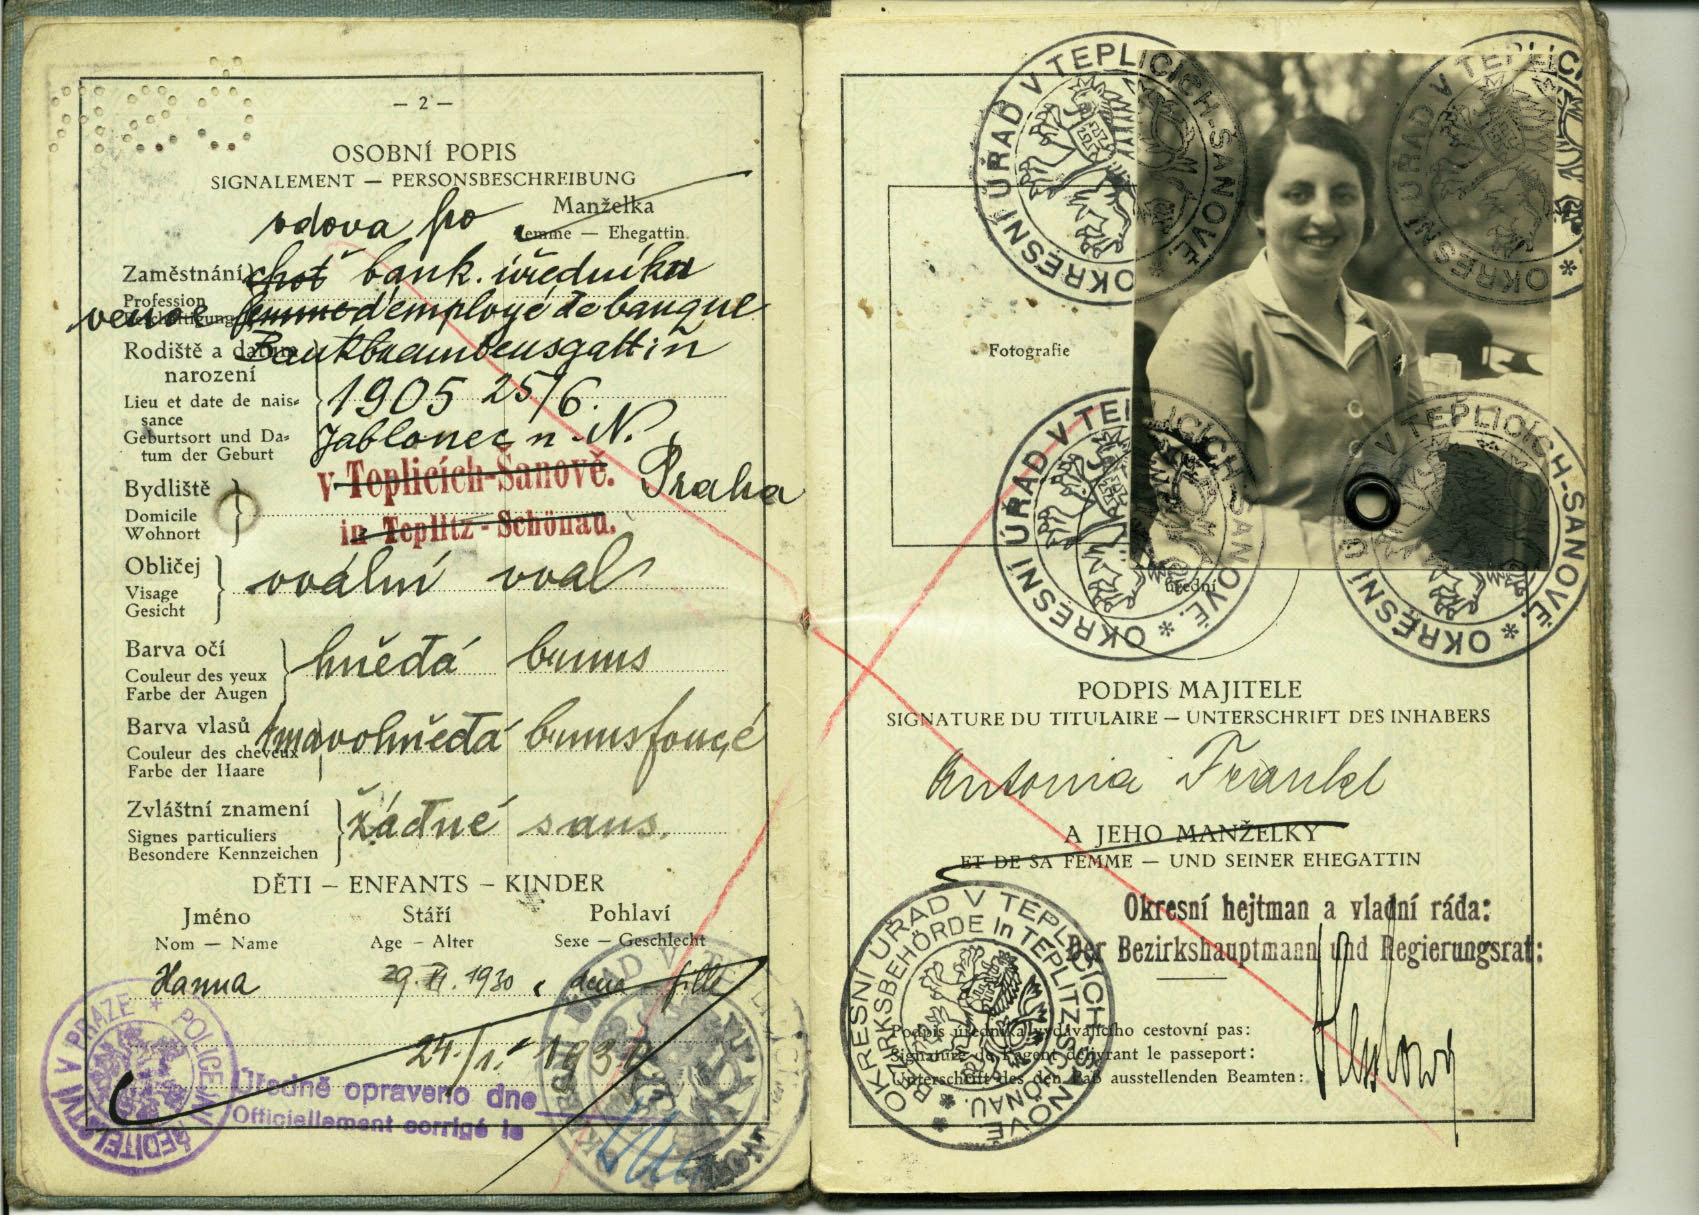 — 2 —
OSOBNÍ POPIS
SIGNALEMENT — PERSONSBESCHREIBUNG
vdova po Manželka
Femme — Ehegattin
Zaměstnání choť bank. úředníka
Profession
Beschäftigung femme d'employé de banque
Bankbeamtensgattin
Rodiště a datum
narození
Lieu et date de nais-
sance
Geburtsort und Da-
tum der Geburt
1905 25/6.
Jablonec n N.
Bydliště
Domicile
Wohnort
v Teplicích-Šanově. Praha
in Teplitz-Schönau.
Obličej
Visage
Gesicht
ovální oval
Barva očí
Couleur des yeux
Farbe der Augen
hnědá bruns
Barva vlasů
Couleur des cheveux
Farbe der Haare
tmavohnědá bruns foncé
Zvláštní znamení
Signes particuliers
Besondere Kennzeichen
žádné sans.
DĚTI — ENFANTS — KINDER
Jméno Stáří Pohlaví
Nom — Name Age — Alter Sexe — Geschlecht
Hanna 1930 dcera fille
Úředně opraveno dne
Officiellement corrigé le
POLICEJNÍ ŘEDITELSTVÍ V PRAZE
OKRESNÍ ÚŘAD V TEPLICÍCH-ŠANOVĚ. *
OKRESNÍ ÚŘAD V TEPLICÍCH-ŠANOVĚ. *
Fotografie
OKRESNÍ ÚŘAD V TEPLICÍCH-ŠANOVĚ. *
OKRESNÍ ÚŘAD V TEPLICÍCH-ŠANOVĚ. *
úřední
PODPIS MAJITELE
SIGNATURE DU TITULAIRE — UNTERSCHRIFT DES INHABERS
Antonia Frankl
A JEHO MANŽELKY
ET DE SA FEMME — UND SEINER EHEGATTIN
Okresní hejtman a vladní ráda:
Der Bezirkshauptmann und Regierungsrat:
OKRESNÍ ÚŘAD V TEPLICÍCH-ŠANOVĚ
BEZIRKSBEHÖRDE in TEPLITZ-SCHÖNAU.
Podpis úředníka vydávajícího cestovní pas:
Signature de l'agent délivrant le passeport:
Unterschrift des den Paß ausstellenden Beamten: